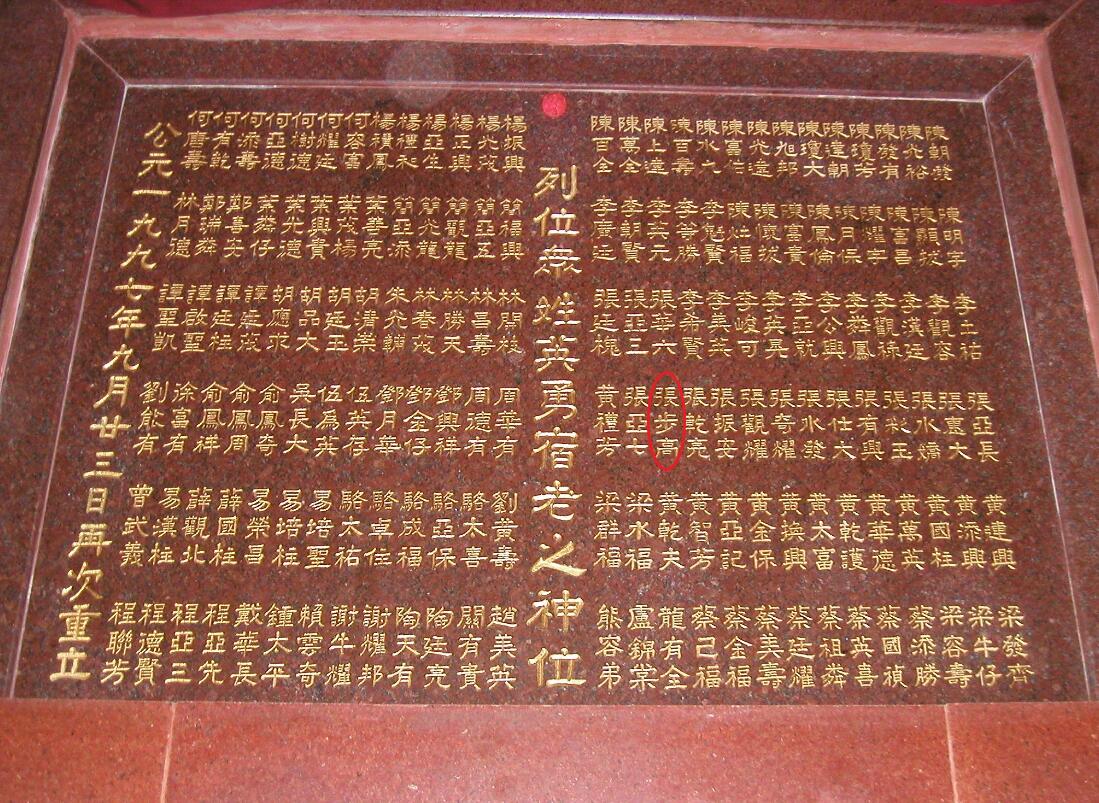 陳朝發
陳光裕
陳發有
陳瓊芳
陳達朝
陳瓊大
陳旭邦
陳光達
陳富佑
陳水九
陳百壽
陳上達
陳萬全
陳百全
陳明字
陳顯拔
陳富喜
陳耀字
陳月保
陳鳳倫
陳富貴
陳懷拔
陳灶福
李魁賢
李勝
李英元
李朝賢
李廣廷
李土祐
李觀容
李漢廷
李觀祿
李粦鳳
李公興
李亞就
李英晃
李峻可
李美英
李希賢
張華六
張亞三
張廷槐
張亞長
張裏大
張水嬌
張秋玉
張有興
張仕大
張水發
張奇耀
張觀耀
張振安
張乾亮
張步高
張亞七
黃禮芳
黃連興
黃添興
黃國柱
黃萬英
黃華德
黃乾護
黃太富
黃換興
黃金保
黃亞記
黃智芳
黃乾夫
梁水福
梁群福
梁發齊
梁牛仔
梁容壽
蔡添勝
蔡國楨
蔡英喜
蔡祖粦
蔡廷耀
蔡美壽
蔡金福
蔡己福
龍有全
盧錦棠
熊容弟
列位無姓英勇宿老之神位
楊振興
楊光茂
楊正興
楊亞生
楊禮永
楊積鳳
何容富
何耀廷
何樹德
何亞德
何添壽
何有乾
何唐壽
簡福興
簡亞五
簡觀龍
簡光龍
簡亞添
葉善亮
葉茂楊
葉興貴
葉光德
葉粦仔
鄭喜安
鄭瑞粦
林月德
林開枝
林昌壽
林勝天
林春茂
朱光輔
胡清棠
胡廷玉
胡品大
胡應求
譚廷茂
譚廷柱
譚啟聖
譚聖凱
周華有
周德有
鄧興祥
鄧金仔
鄧月華
伍英存
伍為英
吳長大
俞鳳奇
俞鳳周
俞鳳祥
徐富有
劉能有
劉黃壽
駱太喜
駱亞保
駱成福
駱卓住
駱太祐
易培聖
易培柱
易榮昌
薛國柱
薛觀北
易漢柱
曾武義
趙美英
關有貴
陶廷亮
陶天有
謝耀邦
謝牛耀
賴雲奇
鍾太平
戴華長
程亞先
程亞三
程德賢
程聯芳
公元一九九七年九月廿三日再次重立